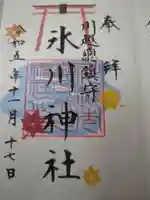 奉拝
川越総鎮守
氷川神社
令和五年十一月十七日